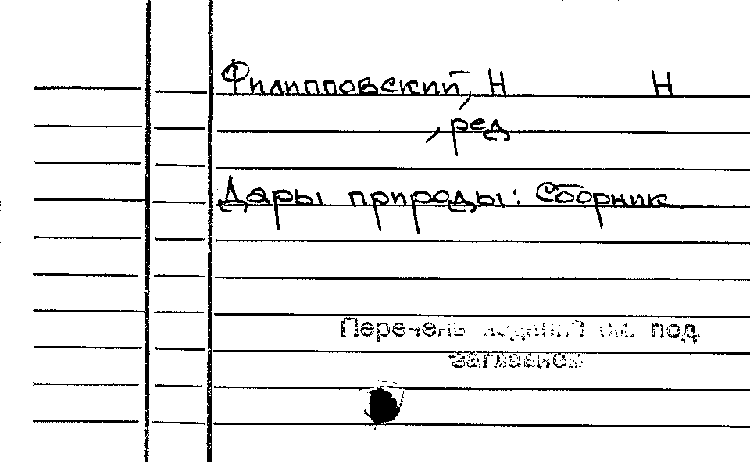 Филипповский, Н Н
, ред
Дары природы: Сборник
Перечень изданий см. под
заглавием